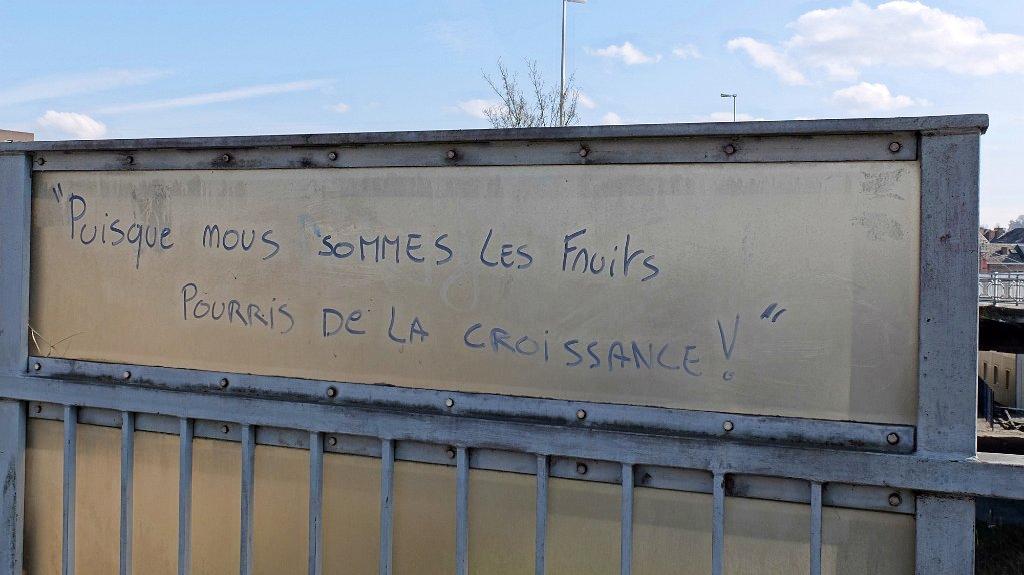 "Puisque nous SOMMES LES FRuits
POURRIS DE LA CROiSSANCE ! "